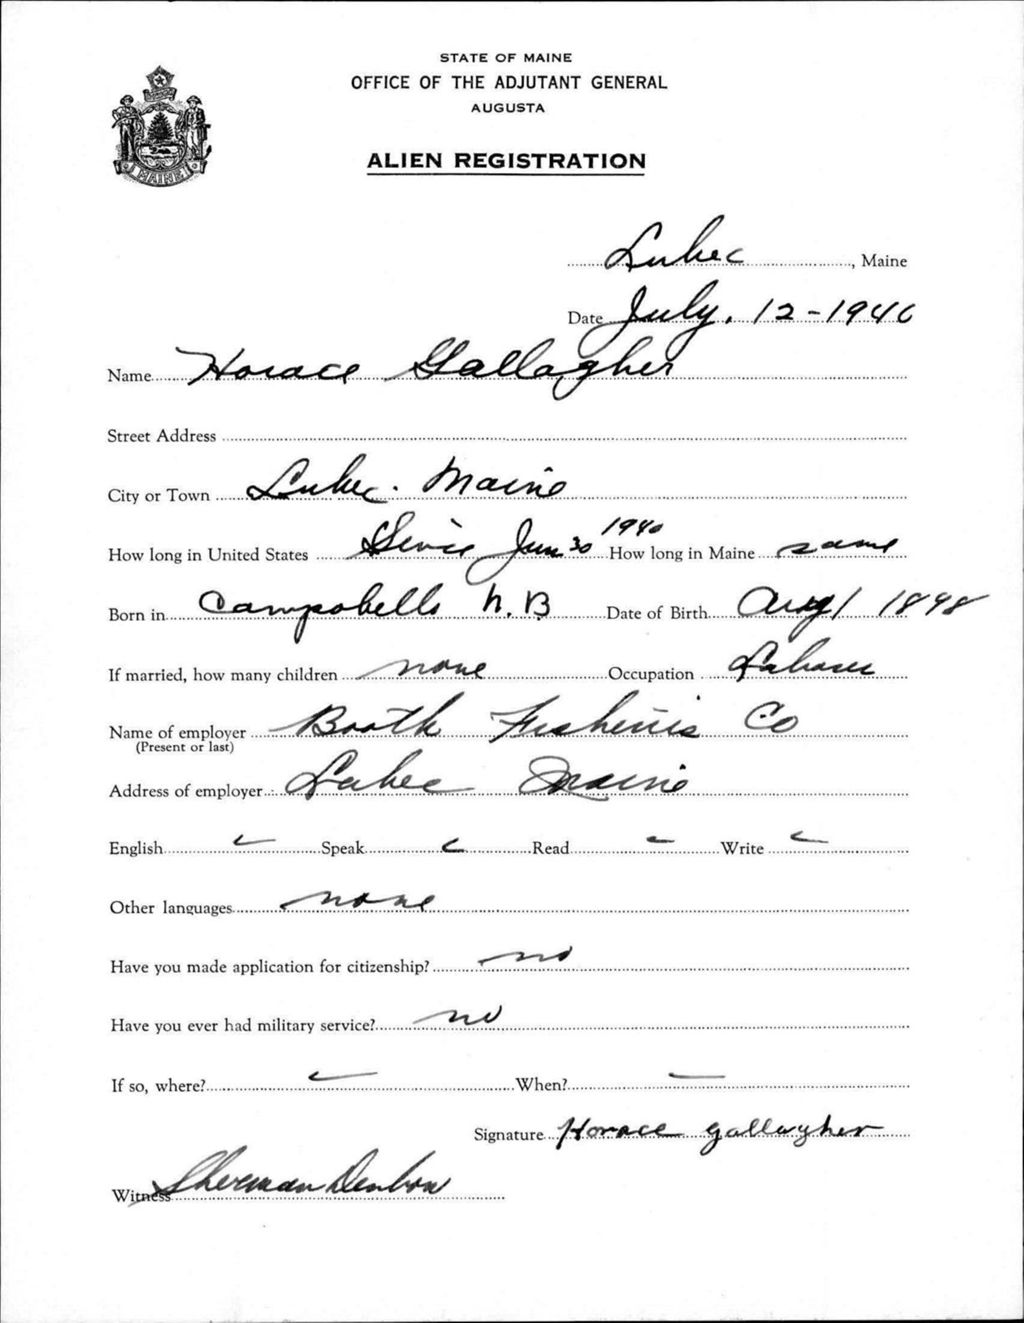 STATE OF MAINE
OFFICE OF THE ADJUTANT GENERAL
AUGUSTA
ALIEN REGISTRATION
MAINE
Lubec, Maine
Date July. 12-1940
Name Horace Gallagher
Street Address
City or Town Lubec. Maine
How long in United States Since Jun 30 1940 How long in Maine same
Born in Campobello N.B Date of Birth Aug 1 1898
If married, how many children none Occupation Laborer
Name of employer Booth Fisheries Co
(Present or last)
Address of employer Lubec Maine
English ✓ Speak ✓ Read ✓ Write ✓
Other languages none
Have you made application for citizenship? no
Have you ever had military service? no
If so, where? ✓ When? ✓
Signature Horace gallagher
Witness Sherman Denbow